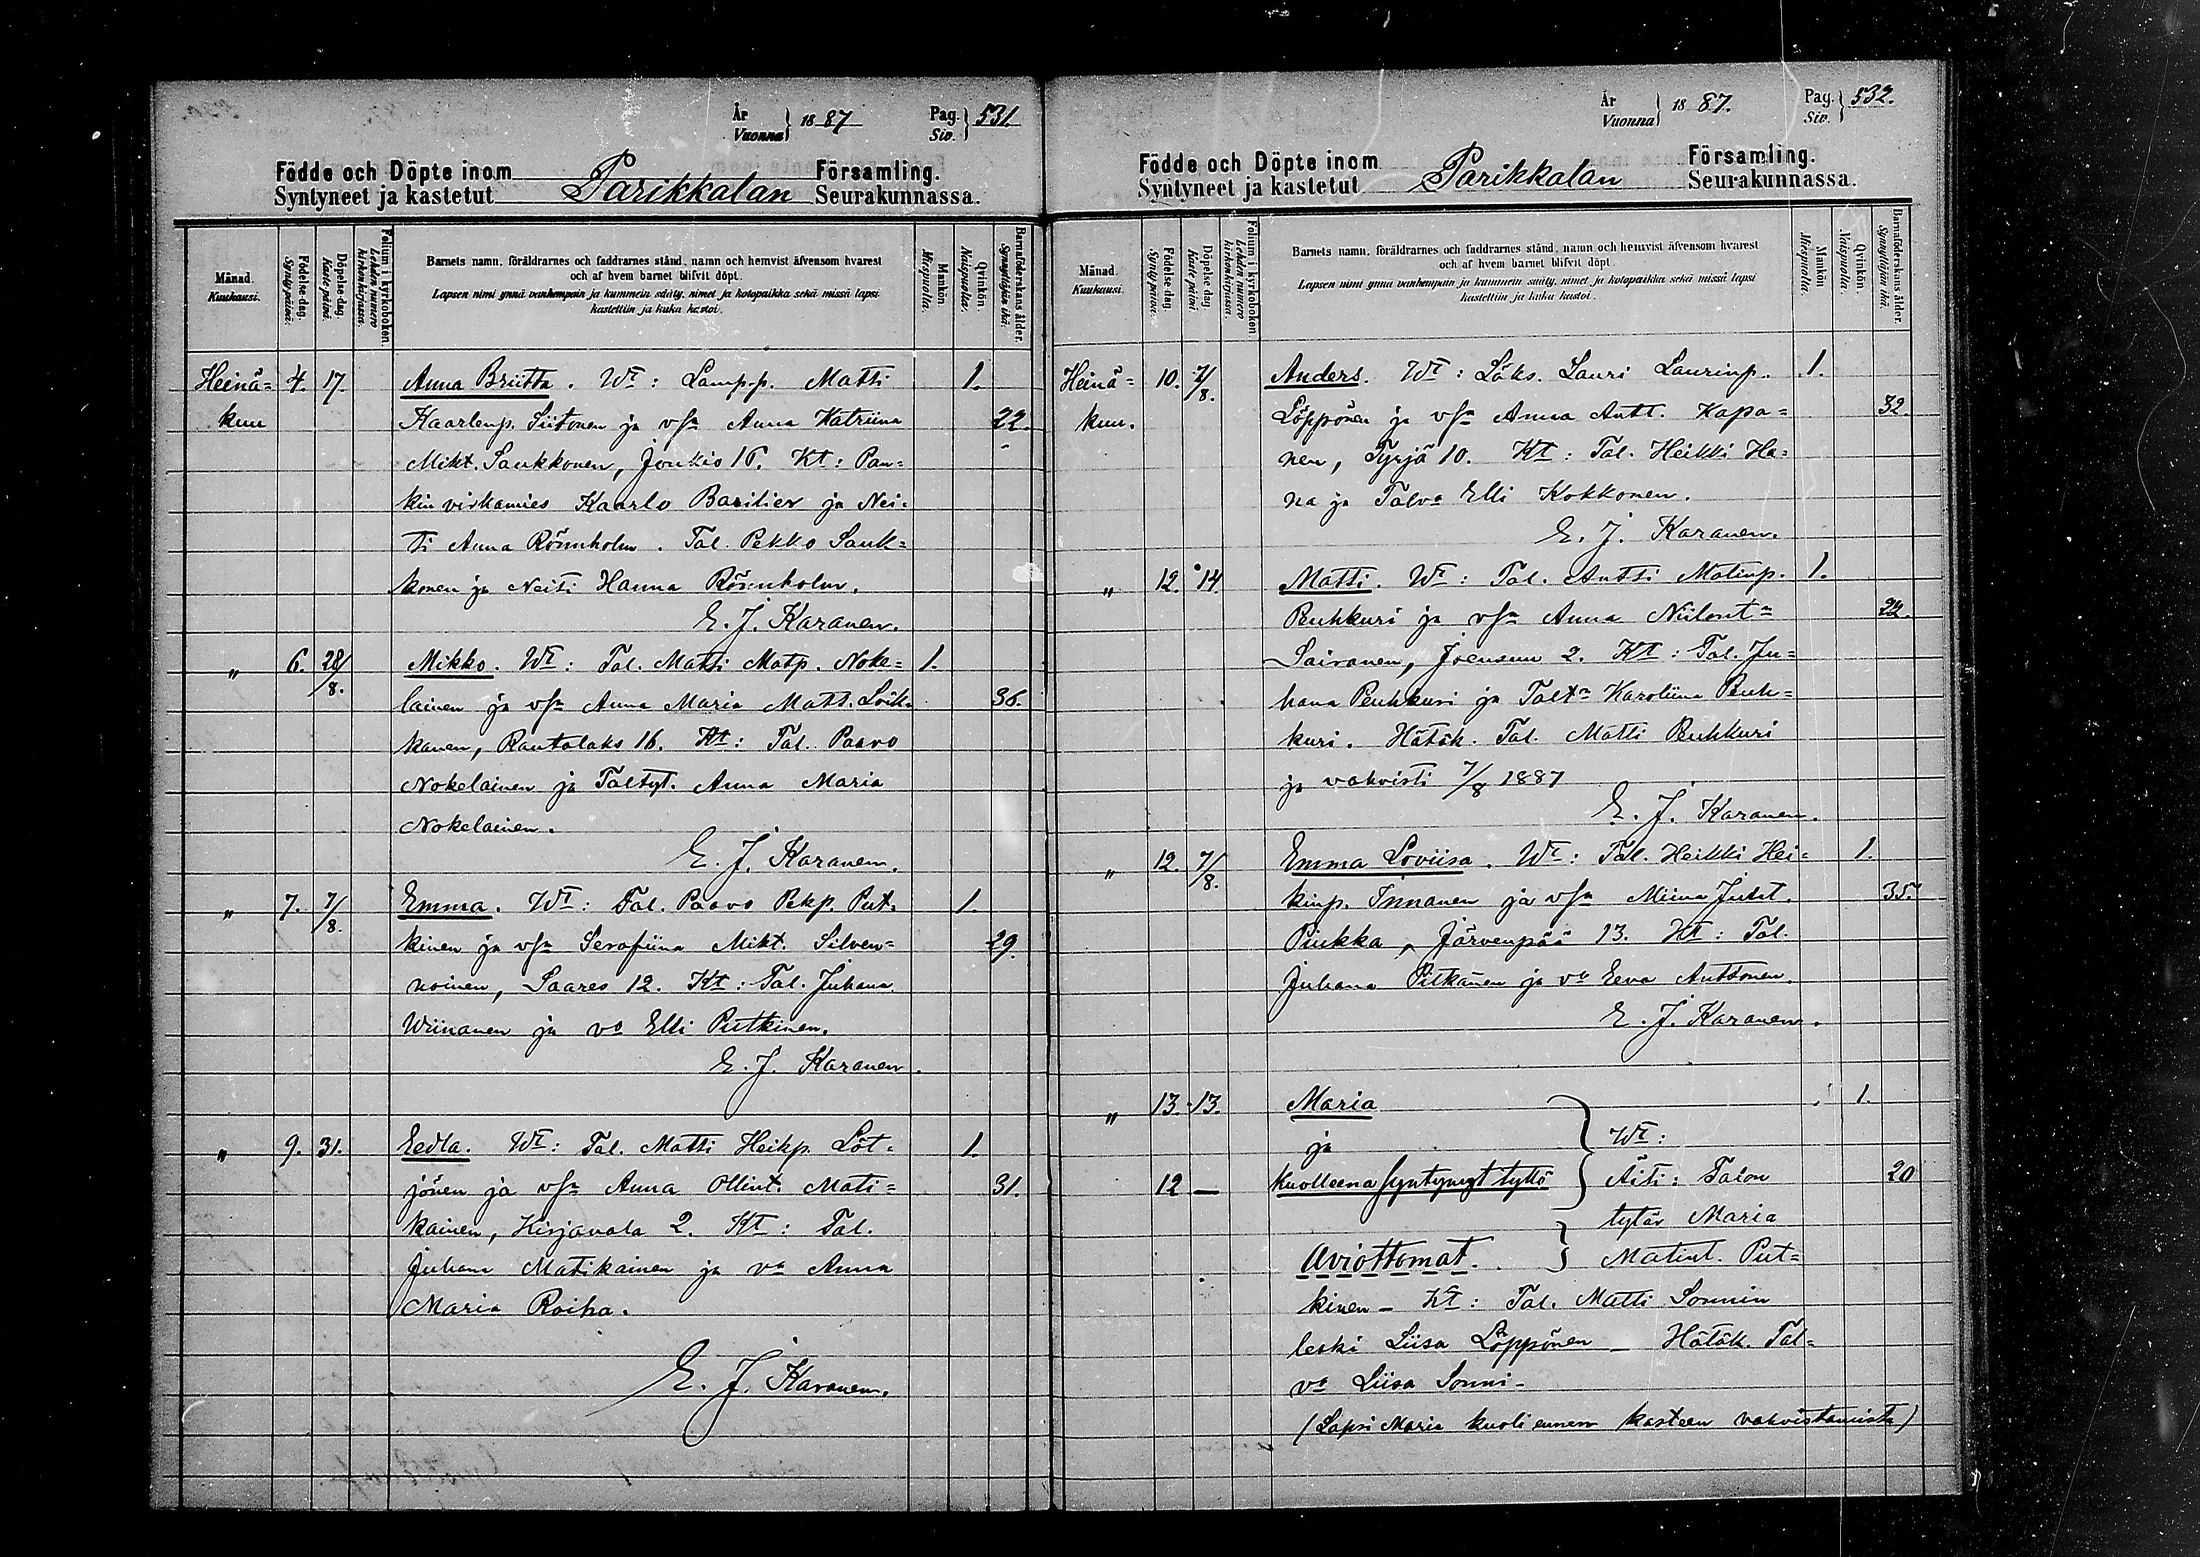 År
Vuonna } 1887 Pag.
Siv. } 531.
Födde och Döpte inom
Syntyneet ja kastetut Parikkalan Församling.
Seurakunnassa.
Månad.
Kuukausi.
Födelse-dag.
Syntypäivä.
Döpelse-dag.
Kaste päivä.
Folium i kyrkoboken.
Lehden numero kirkonkirjassa.
Barnets namn, föräldrarnes och faddrarnes stånd, namn och hemvist äfvensom hvarest
och af hvem barnet blifvit döpt.
Lapsen nimi ynnä vanhempain ja kummein sääty, nimet ja kotopaikka sekä missä lapsi
kastettiin ja kuka kastoi.
Mankön.
Miespuolta.
Qvinkön.
Naispuolta.
Barnaföderskans ålder.
Synnyttäjän ikä.
Heinä= 4. 17. Anna Briitta. Wt: Lamp.p. Matti 1.
kuu Kaarlenp. Siitonen ja vsa Anna Katriina 22.
Mikt. Saukkonen, Joukio 16. Kt: Pan=
kin virkamies Kaarlo Basilier ja Nei=
ti Anna Rönnholm. Tal. Pekko Sauk=
konen ja Neiti Hanna Rönnholm.
E. J. Karanen.
" 6. 28/8. Mikko. Wt: Tal. Matti Matp. Noke= 1.
lainen ja vsa Anna Maria Matt. Loik= 36.
kanen, Rautalaks 16. Kt: Tal. Paavo
Nokelainen ja Taltyt. Anna Maria
Nokelainen.
E. J. Karanen.
" 7. 7/8. Emma. Wt: Tal. Paavo Pekp. Put= 1.
kinen ja vsa Serafiina Mikt. Silven= 29.
noinen, Saares 12. Kt: Tal. Juhana
Wiinanen ja va Elli Putkinen.
E. J. Karanen.
" 9. 31. Eedla. Wt: Tal. Matti Heikp. Löt= 1.
jönen ja vsa Anna Ollint. Mati= 31.
kainen, Kirjavala 2. Kt: Tal.
Juhana Matikainen ja va Anna
Maria Roiha.
E. J. Karanen.
År
Vuonna } 1887. Pag.
Siv. } 532.
Födde och Döpte inom
Syntyneet ja kastetut Parikkalan Församling.
Seurakunnassa.
Månad.
Kuukausi.
Födelse dag.
Synty päivä.
Döpelse dag.
Kaste päivä.
Folium i kyrkoboken.
Lehden numero kirkonkirjassa.
Barnets namn, föräldrarnes och faddrarnes stånd, namn och hemvist äfvensom hvarest
och af hvem barnet blifvit döpt.
Lapsen nimi ynnä vanhempain ja kummein sääty, nimet ja kotopaikka sekä missä lapsi
kastettiin ja kuka kastoi.
Mankön.
Miespuolta.
Qvinkön.
Naispuolta.
Barnaföderskans ålder.
Synnyttäjän ikä.
Heinä= 10. 7/8. Anders. Wt: Läks. Lauri Laurinp. 1.
kuu. Löppönen ja vsa Anna Antt. Kapa= 32.
nen, Tyrjä 10. Kt: Tal. Heikki Ha=
na ja Talva Elli Kokkonen.
E. J. Karanen.
" 12. 14. Matti. Wt: Tal. Antti Matinp. 1.
Peuhkuri ja vsa Anna Niilont= 22.
Sairanen, Joensuu 2. Kt: Tal. Ju=
hana Peuhkuri ja Talt= Karoliina Peuh=
kuri. Hätäk. Tal. Matti Peuhkuri
ja vahvisti 7/8 1887
E. J. Karanen.
" 12. 7/8. Emma Loviisa. Wt: Tal. Heikki Hei= 1.
kinp. Innanen ja vsa Miina Juht. 35.
Piukka, Järvenpää 13. Kt: Tal.
Juhana Pitkänen ja va Eeva Anttonen.
E. J. Karanen.
" 13. 13. Maria 1.
ja Wt:
12 — Kuolleena syntynyt tyttö } Äiti: Talon 20
tytär Maria
Aviottomat. } Matint. Put=
kinen — Kt: Tal. Matti Sonnin
leski Liisa Löppönen — Hätäk. Tal=
va Liisa Sonni —
(Lapsi Maria kuoli ennen kasteen vahvistamista)